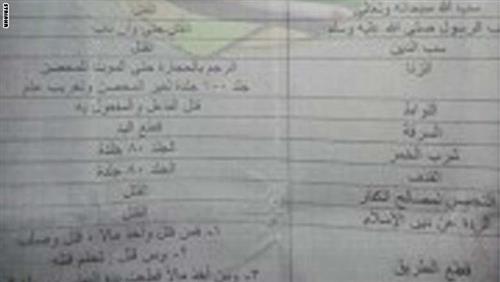 سب الله سبحانه وتعالى القتل
سب الرسول صلى الله عليه وسلم القتل حتى وإن تاب
سب الدين القتل
الزنا الرجم بالحجارة حتى الموت للمحصن
جلد ١٠٠ جلدة لغير المحصن وتغريب عام
اللواط قتل الفاعل والمفعول به
السرقة قطع اليد
شرب الخمر الجلد ٨٠ جلدة
القذف الجلد ٨٠ جلدة
التجسس لصالح الكفار القتل
الردة عن دين الإسلام القتل
قطع الطريق ١- من قتل وأخذ مالا ، قتل وصلب
٢- ومن قتل ، تحتم قتله
٣- ومن أخذ مالا قطعت يده